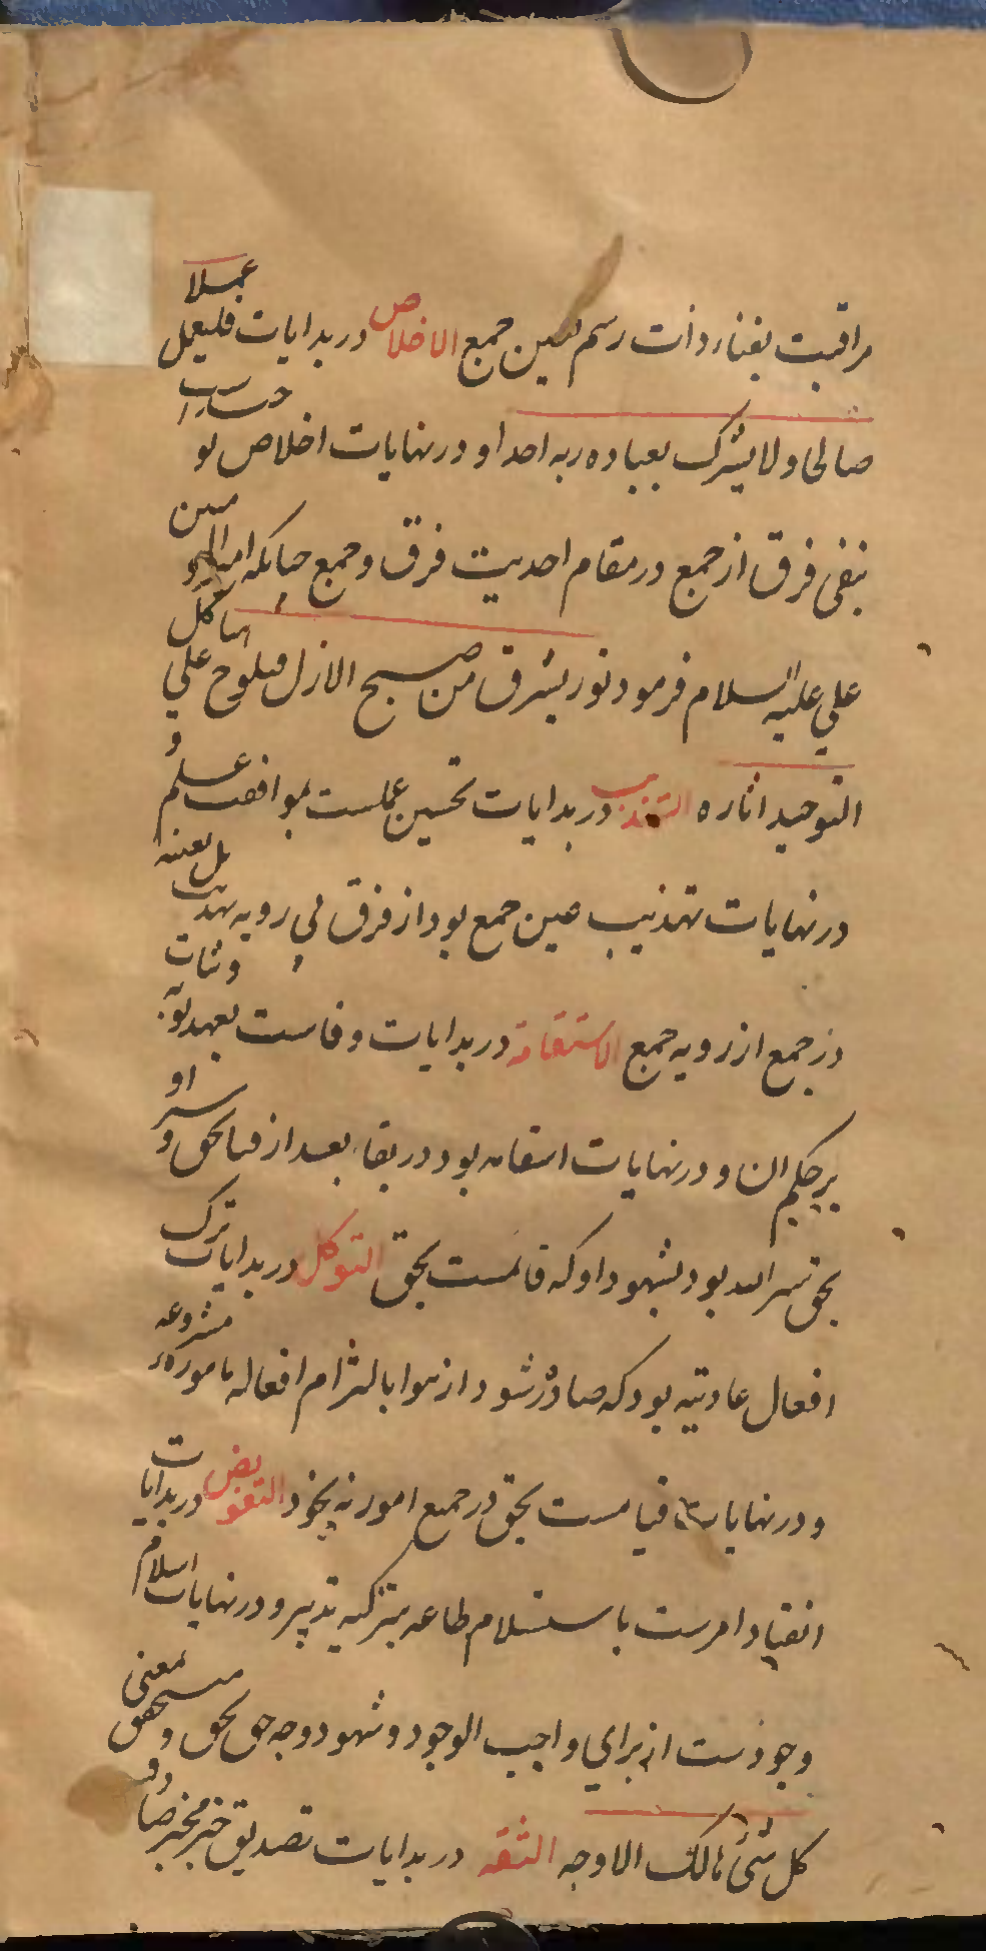 مراقبت بفناء ذات رسم بعین جمع الاخلاص در بدایات فلیعمل عملا
صالحا ولا یشرک بعباده ربه احدا و در نهایات اخلاص بو
بنفی فرق از جمع در مقام احدیت فرق و جمع چنانکه امیرالمومنین
علی علیه السلام فرمود نور یشرق من صبح الازل فیلوح علی هیاکل
التوحید آثاره التهذیب در بدایات تحسین عملست بموافقت علم و
در نهایات تهذیب عین جمع بود از فرق بی رویه تهذیب بل بعینه
در جمع از رویه جمع الاستقامة در بدایات وفاست بعهد توبه و ثبات
بر حکم ان و در نهایات استقامه بود در بقاء بعد از فنا بحق و سیر او
بحق سیر الله بود بشهود او که قائمست بحق التوکل در بدایات ترک
افعال عادتیه بود که صادر شود از هوا بالتزام افعاله مامور مشروعه
و در نهایات قیامست بحق در جمیع امور نه بخود التفویض در بدایات
انقیاد امرست باستسلام طاعه بترک تدبیر و در نهایات اسلام
وجودست از برای واجب الوجود و شهود وجه حق بحق و تحقق بمعنی
کل شئ هالک الا وجه الثقه در بدایات تصدیق خبر مخبر صادق